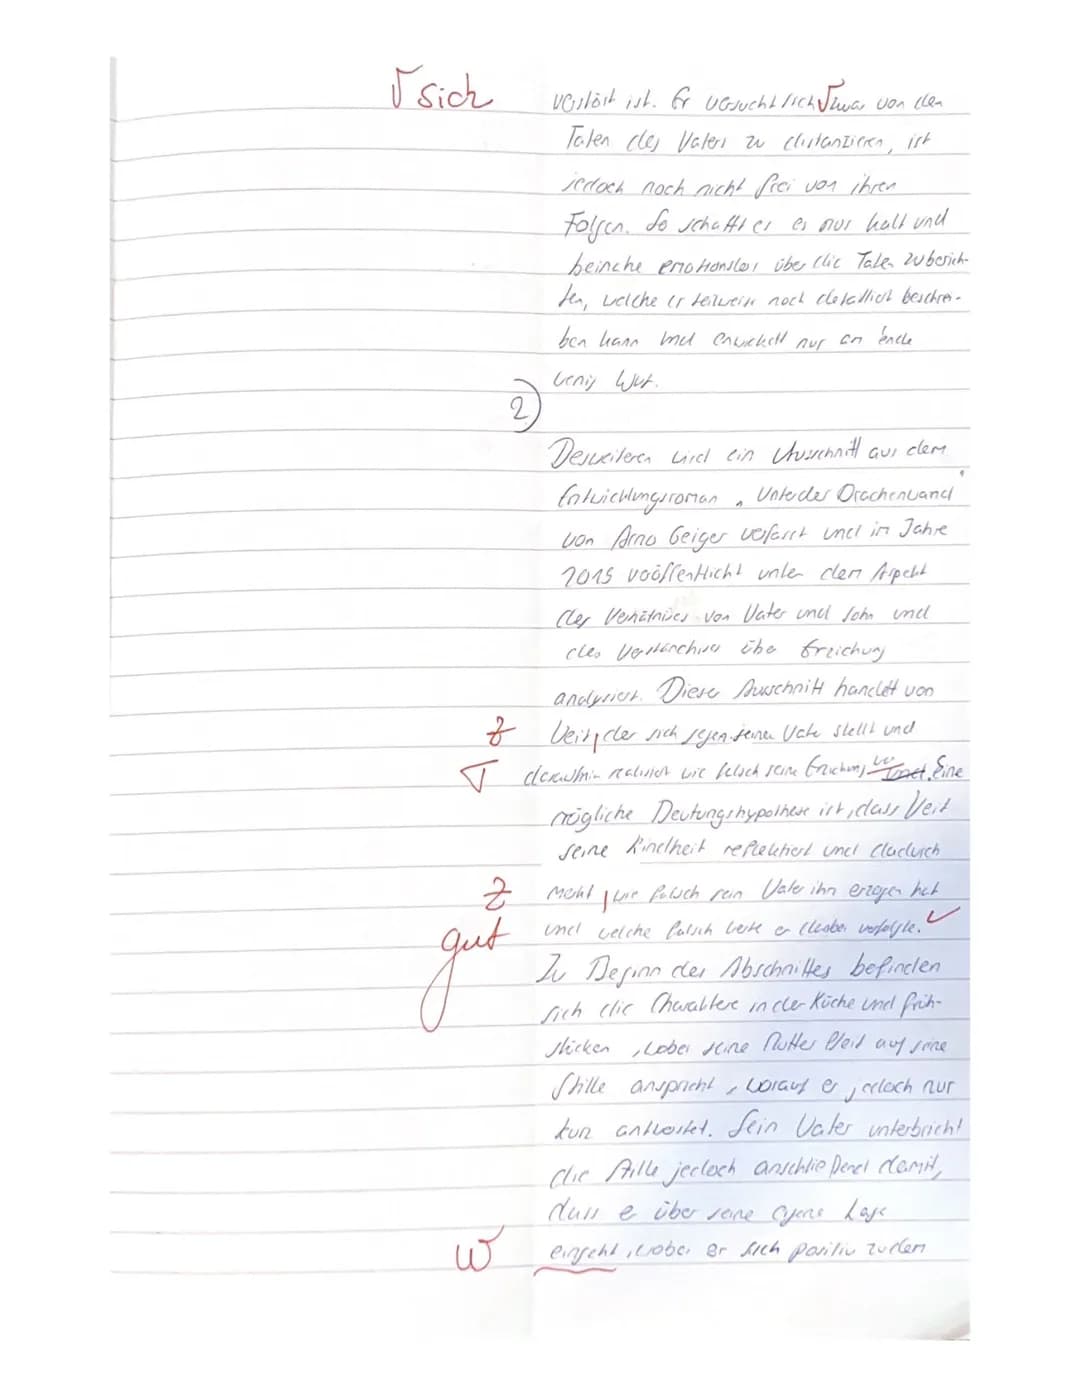 √ sich
verstört ist. Er versucht sich √ zwar von den
Taten des Vaters zu distanzieren, ist
jedoch noch nicht frei von ihren
Folgen. So schafft er es nur kalt und
beinahe emotionslos über die Taten zu berich-
ten, welche er teilweise noch detailliert beschrei-
ben kann und entwickelt nur am ende
wenig Wut.
2)
Desweiteren wird ein Ausschnitt aus dem
Entwicklungsroman „Unter der Drachenwand"
von Arno Geiger verfasst und im Jahre
2015 veröffentlicht unter dem Aspekt
des Verhältnises von Vater und Sohn und
des Verständnises über Erziehung
analysiert. Dieser Ausschnitt handelt von
Z Veit, der sich gegen seinen Vater stellt und
T daraufhin realisiert wie falsch seine Erziehung war. Eine
mögliche Deutungshypothese ist, dass Veit
seine Kindheit reflektiert und dadurch
Z merkt, wie falsch sein Vater ihn erzogen hat
gut und welche falsch Werte er dabei verfolgte. ✓
Zu Beginn des Abschnittes befinden
sich die Charaktere in der Küche und früh-
stücken, wobei seine Mutter Veit auf seine
Stille anspricht, worauf er jedoch nur
kurz antwortet. Sein Vater unterbricht
die Stille jedoch anschließend damit,
dass er über seine eigene Lage
W eingeht, wobei er sich positiv zu dem